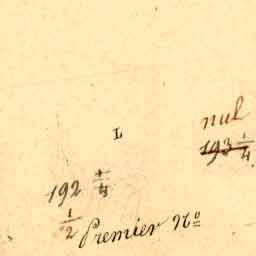 nul
193 1/4
L
192 1/4
1/2
Premier Nº